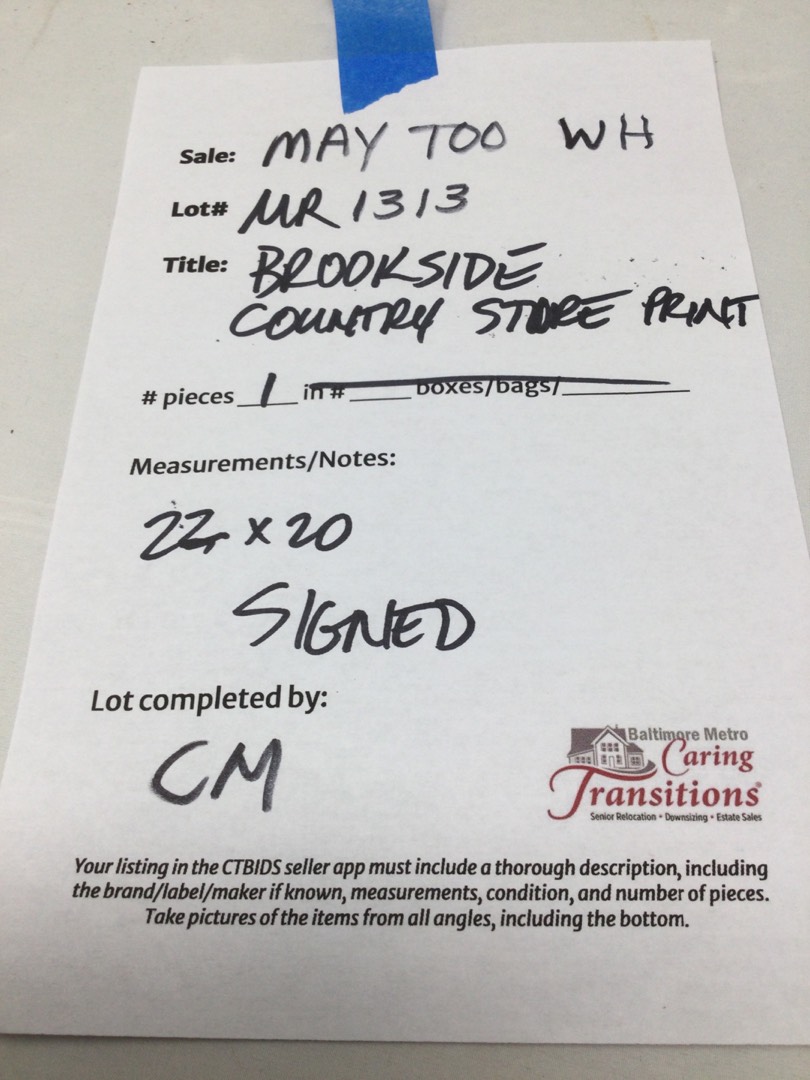 Sale: MAY TOO WH
Lot# MR 1313
Title: BROOKSIDE
COUNTRY STORE PRINT
# pieces 1 in # ____ boxes/bags/____
Measurements/Notes:
22 x 20
SIGNED
Lot completed by:
CM
Baltimore Metro
Caring
Transitions®
Senior Relocation • Downsizing • Estate Sales
Your listing in the CTBIDS seller app must include a thorough description, including
the brand/label/maker if known, measurements, condition, and number of pieces.
Take pictures of the items from all angles, including the bottom.